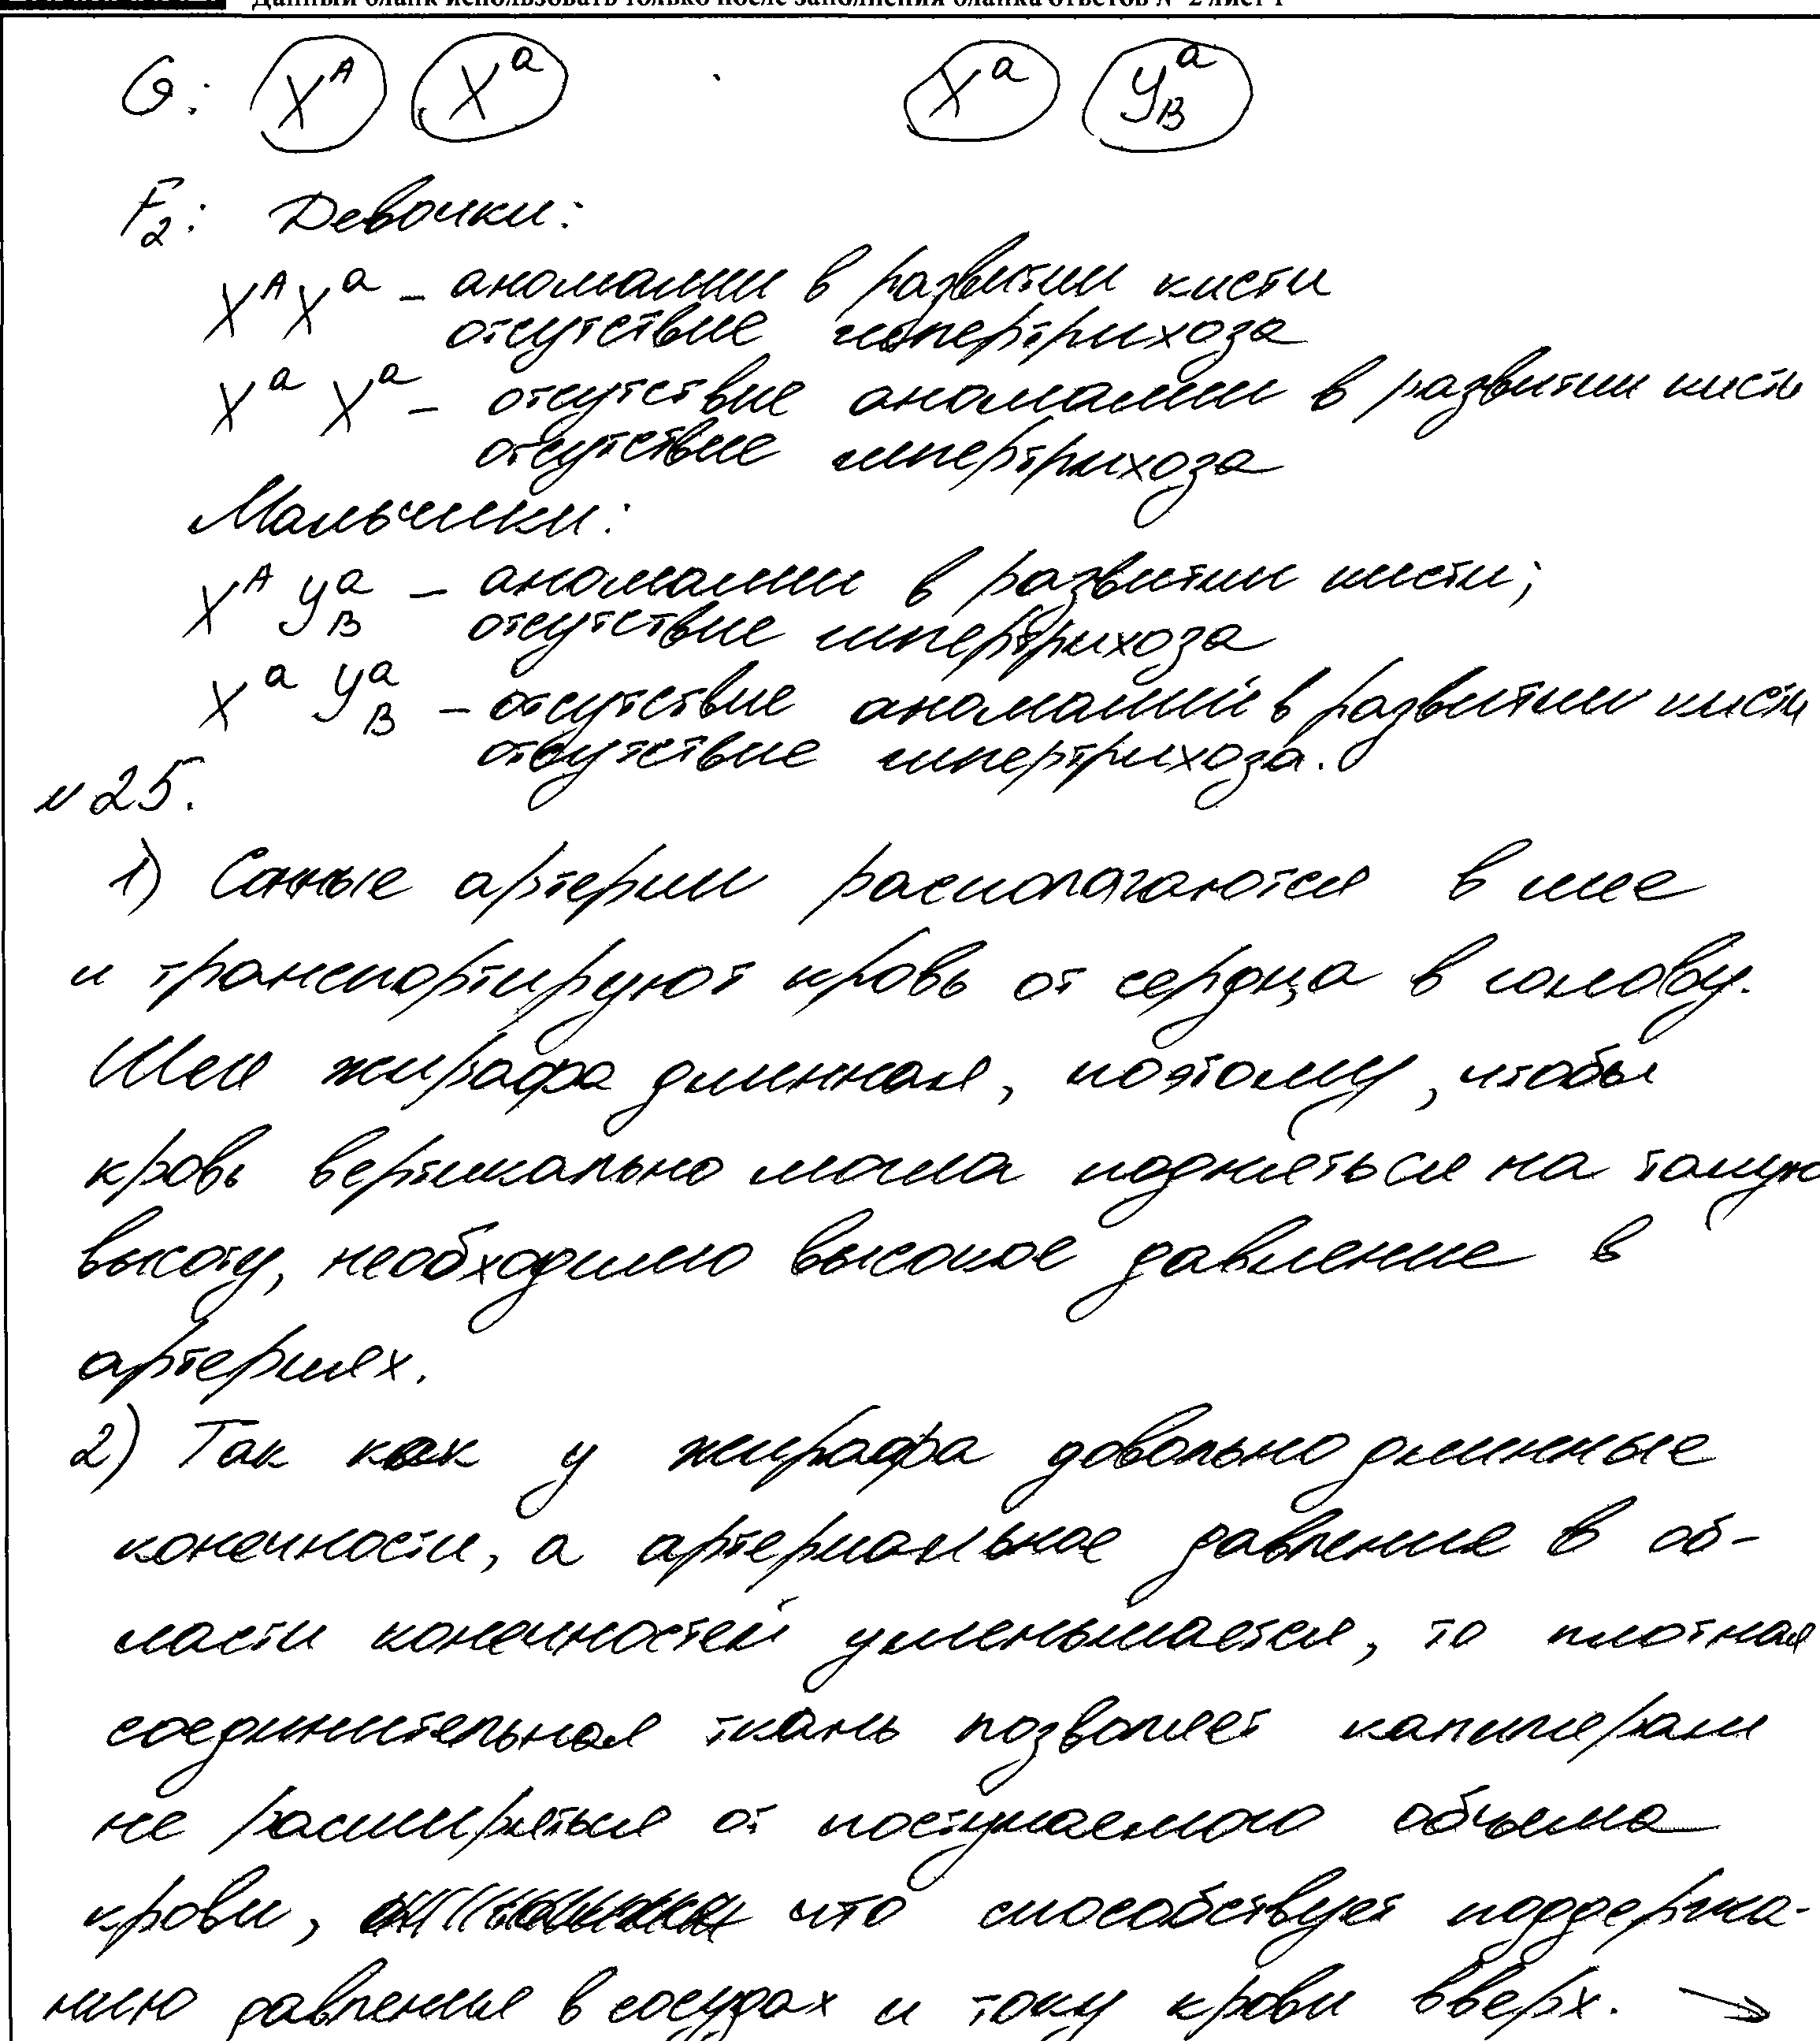 Данный бланк использовать только после заполнения бланка ответов № 2 лист 1
G: X^A X^a X^a Y_B^a
F₂: Девочки:
X^A X^a – аномалии в развитии кисти
отсутствие гипертрихоза
X^a X^a – отсутствие аномалии в развитии кисти
отсутствие гипертрихоза
Мальчики:
X^A Y_B^a – аномалии в развитии кисти;
отсутствие гипертрихоза
X^a Y_B^a – отсутствие аномалий в развитии кисти
отсутствие гипертрихоза.
№25.
1) Сонные артерии располагаются в шее
и транспортируют кровь от сердца в голову.
Шея жирафа длинная, поэтому, чтобы
кровь вертикально могла подняться на такую
высоту, необходимо высокое давление в
артериях.
2) Так как у жирафа довольно длинные
конечности, а артериальное давление в об-
ласти конечностей уменьшается, то плотная
соединительная ткань позволяет капилярам
не расширяться от поступаемого объема
крови, что способствует поддержа-
нию давления в сосудах и току крови вверх. →